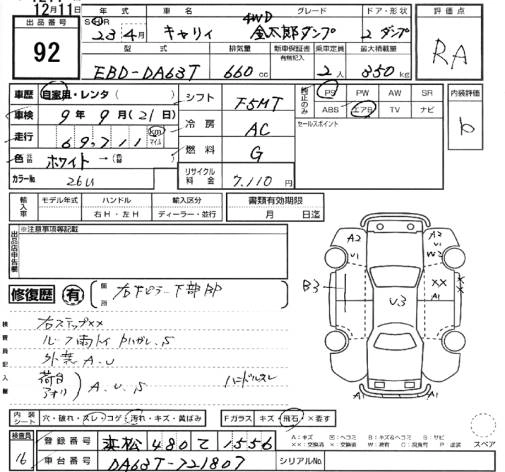 12月11日
出品番号
92
年式 車名 グレード ドア・形状
SH R 23年4月 キャリィ 4WD 金太郎ダンプ 2 ダンプ
型式 排気量 新車保証書 有無記入 乗車定員 最大積載量
EBD-DA63T 660cc 2人 350kg
評価点
RA
車歴 自家用・レンタ( )
車検 9年9月(21日)
走行 69,711 km マイル
色 ホワイト →
カラーNo 26U
シフト F5MT
冷房 AC
燃料 G
リサイクル料金 7,110円
純正のみ PS PW AW SR
ABS エアB TV ナビ
セールスポイント
内装評価
b
輸入車 モデル年式 ハンドル 輸入区分
右H・左H ディーラー・並行
書類有効期限
月 日迄
出品店申告欄
※注意事項等記載
修復歴 有
箇所
右下ピラー下部 即
検査員記入欄
右ステップ××
外装 A.U
荷台 アオリ A.U.S
A2 U1 A2 U1 W2 B3 U3 XX A1 A1
内装シート 穴・破れ・スレ・コゲ 汚れ・キズ・黄ばみ
Fガラス キズ・飛石・×要す
A:キズ U:ヘコミ B:キズ&ヘコミ S:サビ
スペア
検査員
16
登録番号 480 て 1556
車台番号 DA63T-721807
シリアルNo.